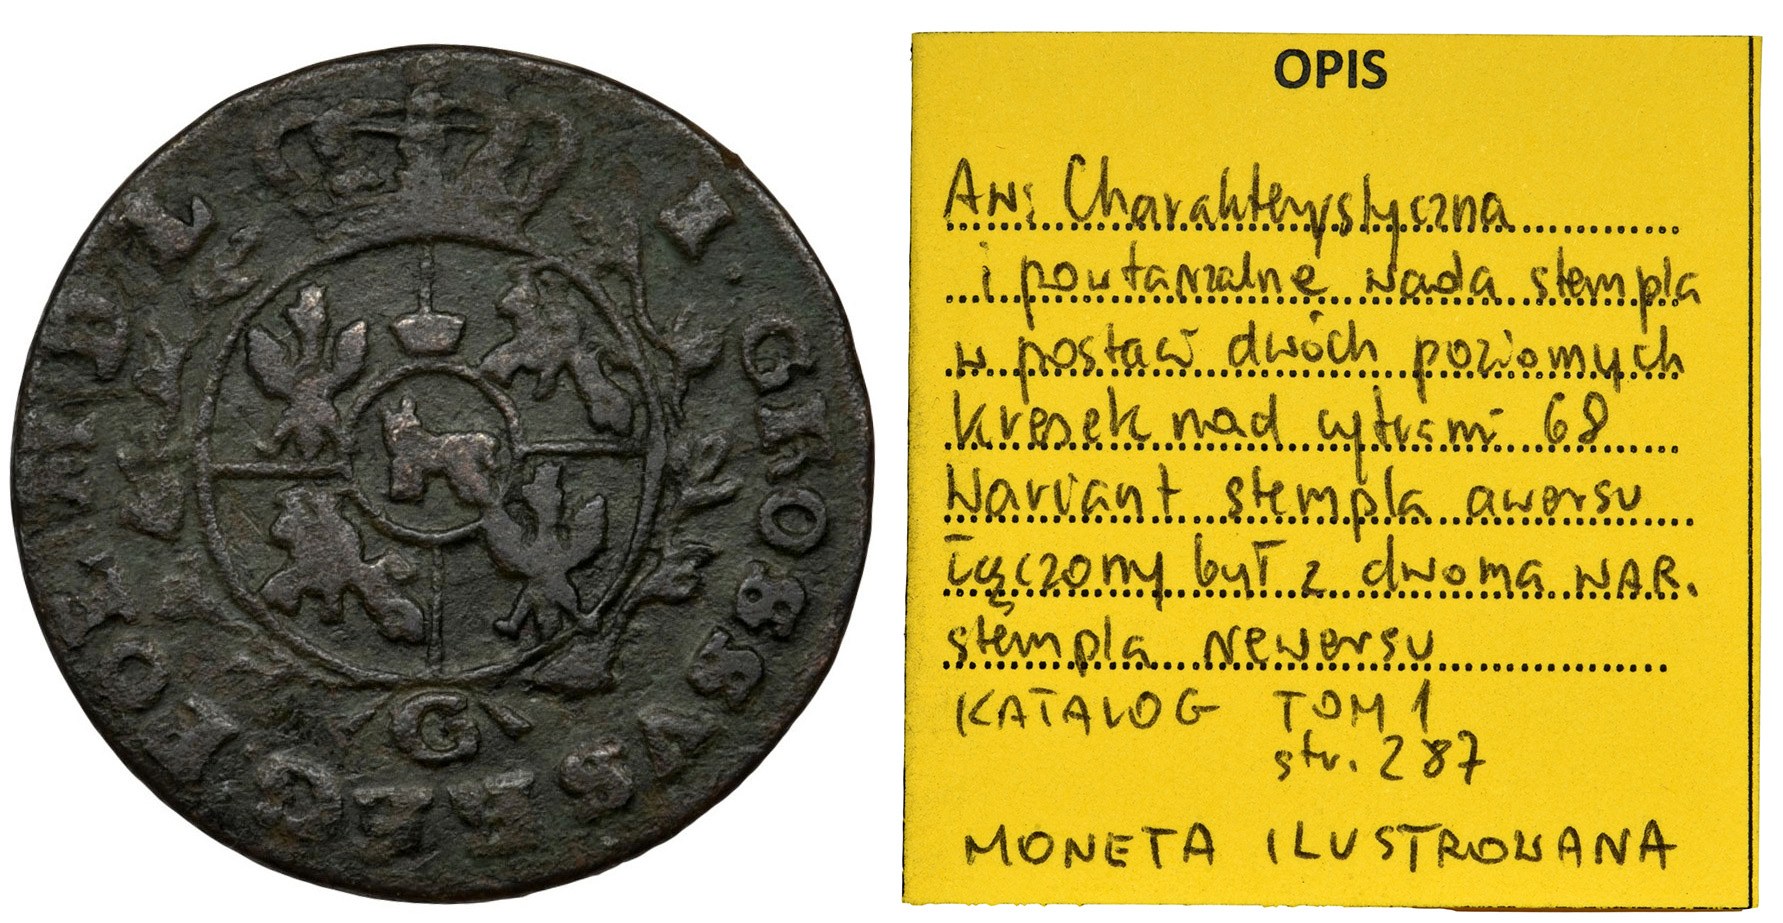 I · GROSSVS REG · POL · M · D · L
G
OPIS
Aw: Charakterystyczna
i powtarzalne wada stempla
w postaci dwóch poziomych
kresek nad cyframi 68
Wariant stempla awersu
łączony był z dwoma WAR.
stempla rewersu
KATALOG TOM 1
str. 287
MONETA ILUSTROWANA